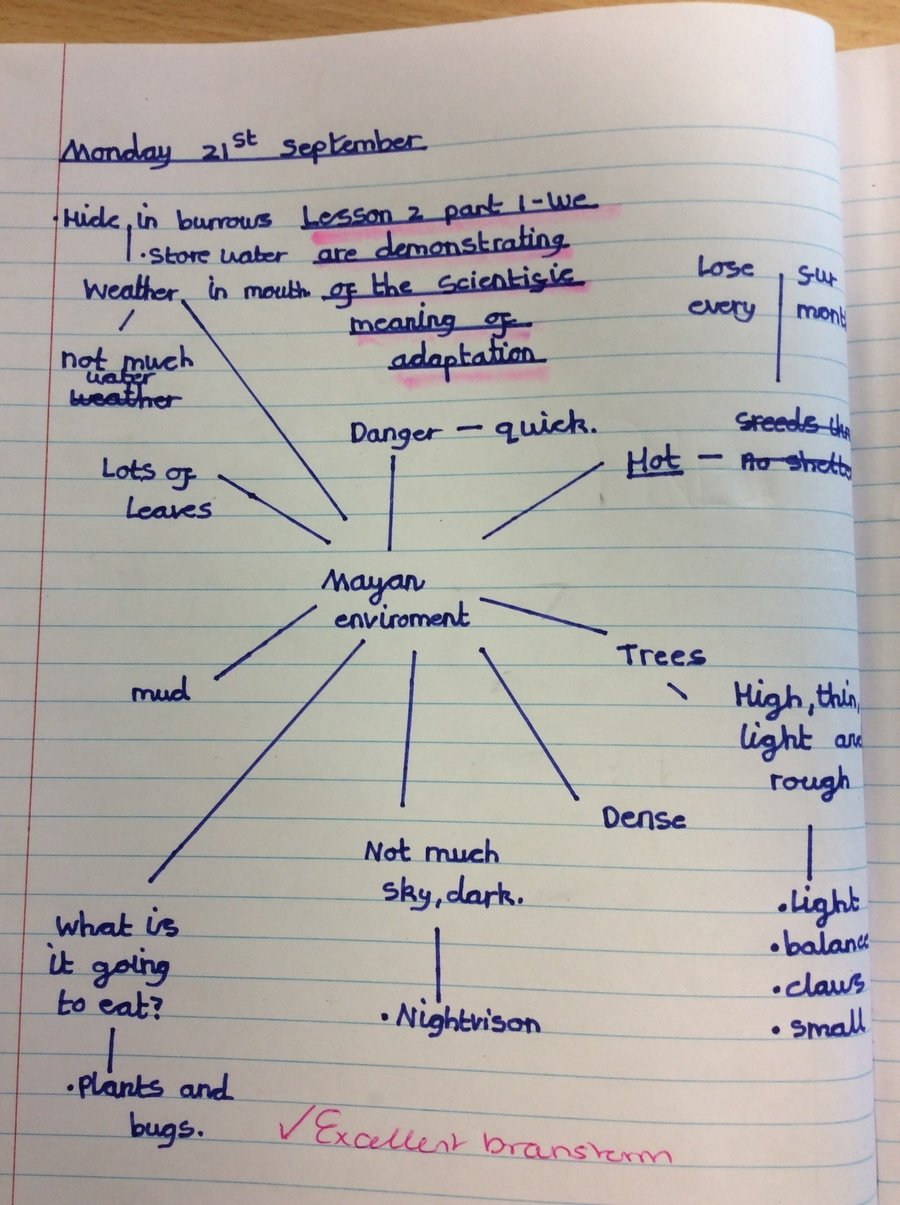 Monday 21st September
·Hide in burrows
·Store water
in mouth
Lesson 2 part 1-We
are demonstrating
of the scientisic
meaning of
adaptation
Weather
not much
water
weather
Lose
every
Danger - quick.
Hot -
Lots of
Leaves
Mayan
enviroment
Trees
High, thin,
light and
rough
·Light
·balance
·claws
·small
mud
Dense
Not much
sky, dark.
·Nightvison
What is
it going
to eat?
·Plants and
bugs.
✓ Excellent branstorm